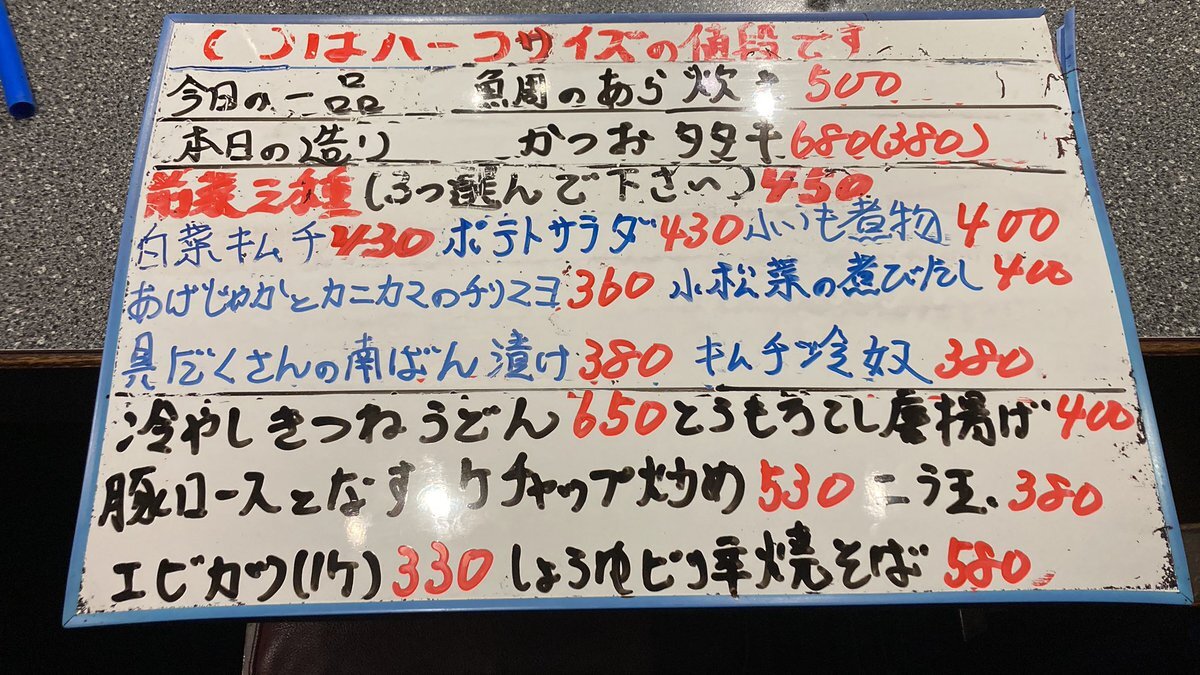 ( )はハーフサイズの値段です
今日の一品 魚周のあら炊き 500
本日の造り かつおタタキ 680(380)
前菜三種(3つ選んで下さい)450
白菜キムチ 430 ポテトサラダ 430 小いも煮物 400
あげじゃがとカニカマのチリマヨ 360 小松菜の煮びたし 400
具だくさんの南ばん漬け 380 キムチ冷奴 380
冷やしきつねうどん 650 とうもろこし唐揚げ 400
豚ロースとなす ケチャップ炒め 530 ニラ玉 380
エビカツ(1ケ) 330 しょうゆピリ辛焼そば 580